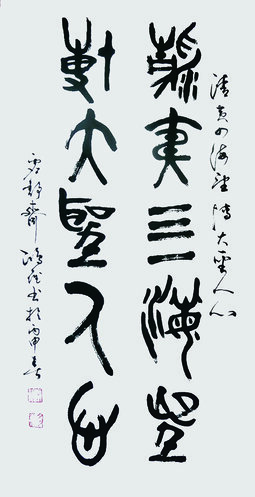 清夷四海望博大聖人心
夷四海望
博大聖人心
靜齋鴻書於丙申春